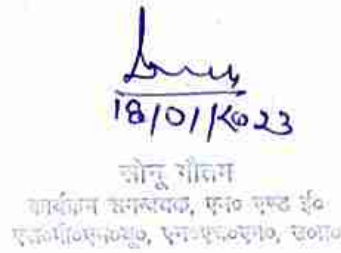 18/01/2023
सोनू गौतम
कार्यक्रम समन्वयक, एम० एण्ड ई०
एस०पी०एम०यू०, एन०एच०एम०, उ०प्र०